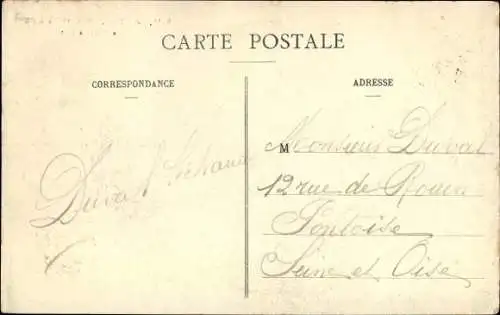 CARTE POSTALE
CORRESPONDANCE
ADRESSE
Duval
Monsieur Duval
12 rue de Rouen
Pontoise
Seine et Oise